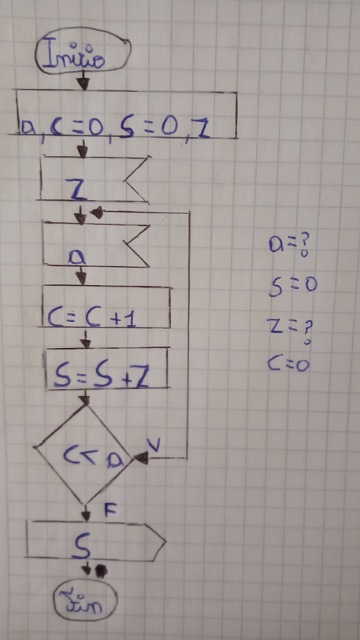 Inicio
a, C=0, S=0, Z
Z
a
C= C +1
S=S+Z
C< a
V
F
S
Fin
a=?
S=0
Z=?
C=0